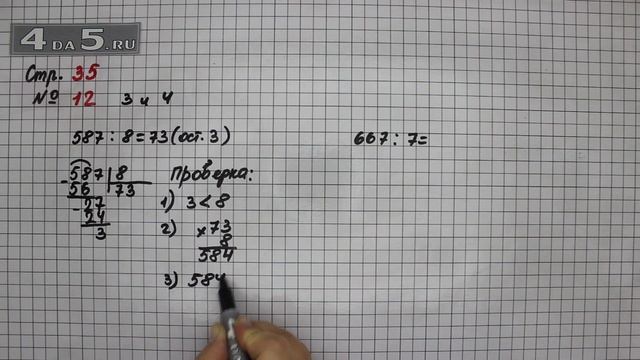 4 DA 5.RU
Стр. 35
№ 12 3 и 4
587 : 8 = 73 (ост. 3)
667 : 7=
587 | 8
- 56 | 73
- 27
24
3
Проверка:
1) 3 < 8
2) × 73
8
584
3) 584